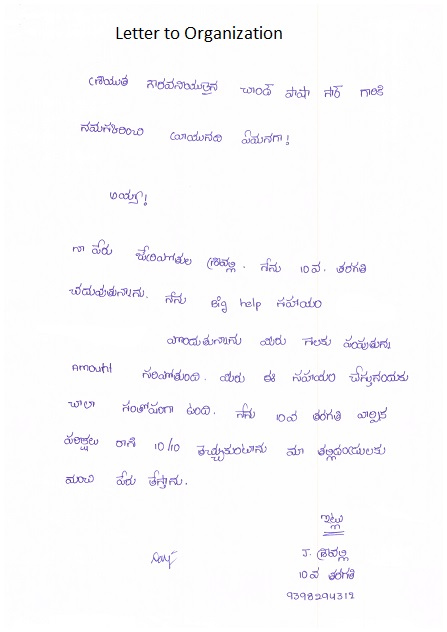 Letter to Organization
శ్రీయుత గౌరవనీయులైన చాంద్ పాషా సార్ గారికి
నమస్కరించి వ్రాయునది ఏమనగా!
అయ్యా!
నా పేరు శ్రీవల్లి. నేను 10 వ. తరగతి
చదువుతున్నాను. నేను Big help సహాయం
పొందుతున్నాను మీరు నెలకు పంపుతున్న
Amount సరిపోతుంది. మీరు ఈ సహాయం చేస్తున్నందుకు
చాలా సంతోషంగా ఉంది. నేను 10వ తరగతి వార్షిక
పరీక్షలు రాసి 10/10 తెచ్చుకుంటాను మా తల్లిదండ్రులకు
మంచి పేరు తెస్తాను.
ఇట్లు
J. శ్రీవల్లి
10 వ తరగతి
9398294312